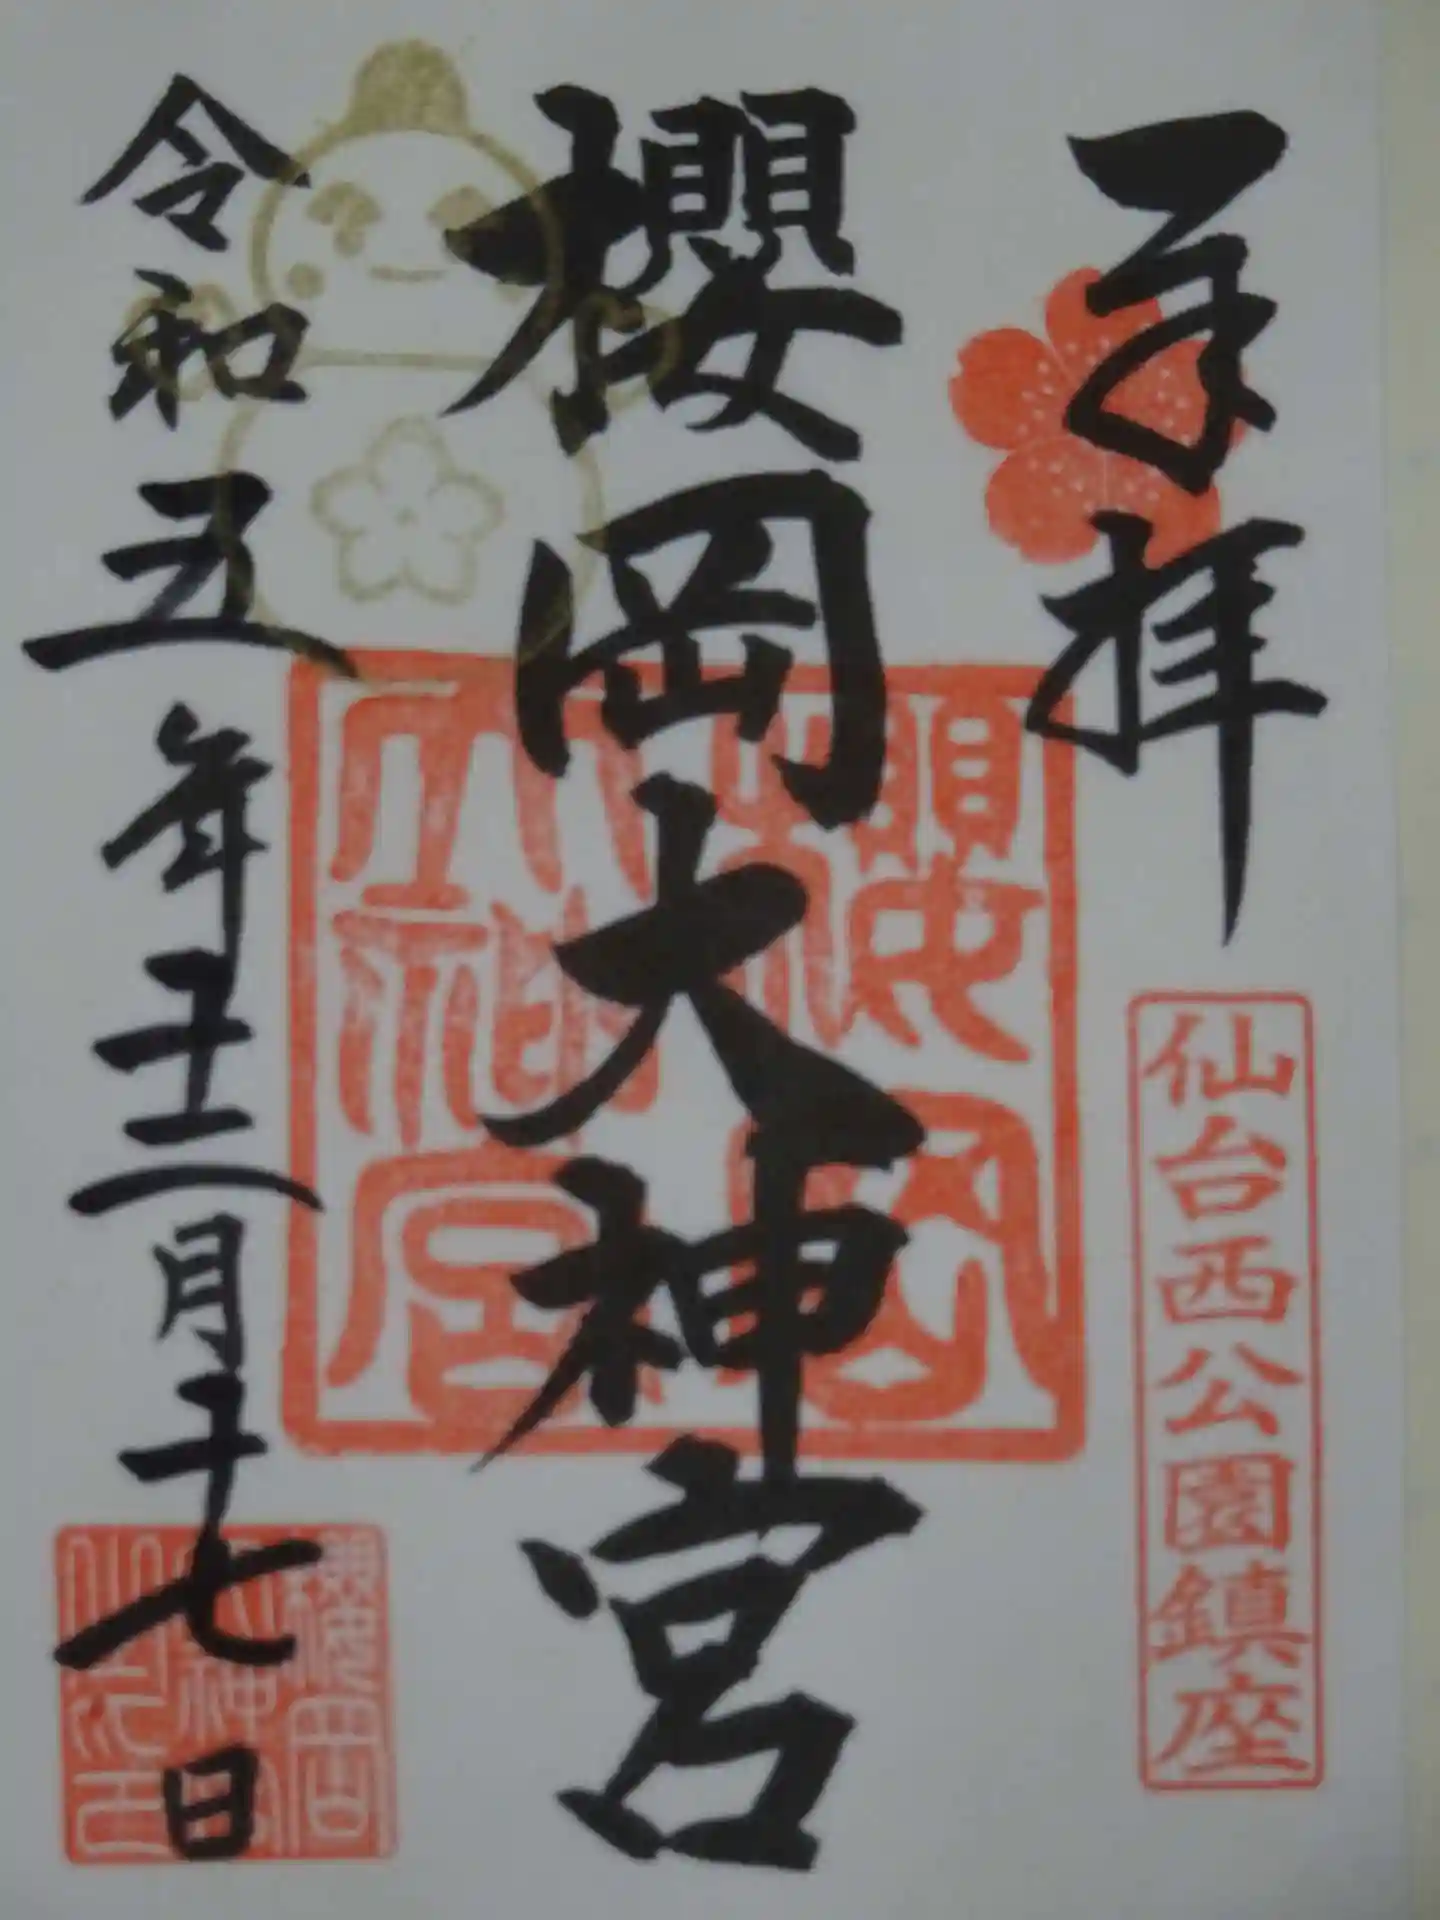 奉拝
仙台西公園鎮座
櫻岡大神宮
櫻岡
大神宮
令和五年十二月十七日
櫻岡